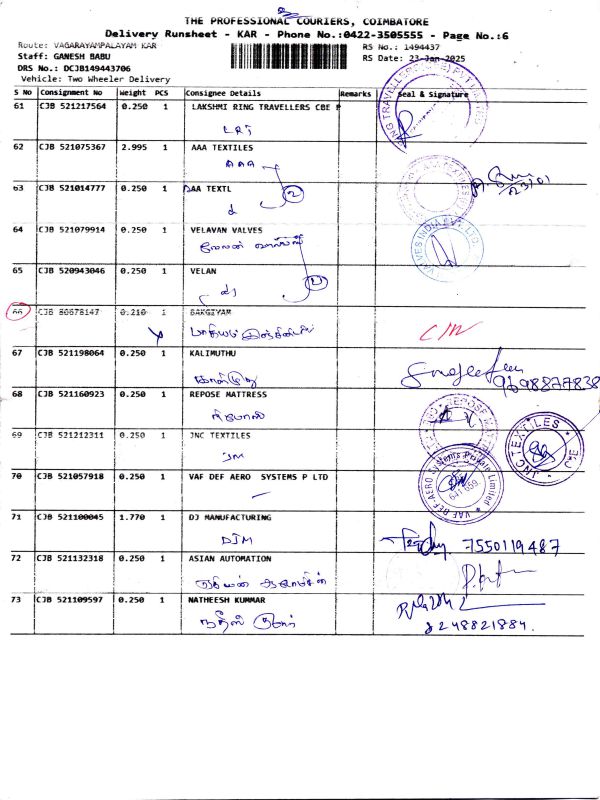 THE PROFESSIONAL COURIERS, COIMBATORE
Delivery Runsheet - KAR - Phone No.:0422-3505555 - Page No.:6
Route: VAGARAYAMPALAYAM KAR
RS No.: 1494437
Staff: GANESH BABU
RS Date: 23-Jan-2025
DRS No.: DCJB149443706
Vehicle: Two Wheeler Delivery
S No Consignment No Weight PCS Consignee Details Remarks Seal & Signature
61 CJB 521217564 0.250 1 LAKSHMI RING TRAVELLERS CBE P
LRT
62 CJB 521075367 2.995 1 AAA TEXTILES
AAA
63 CJB 521014777 0.250 1 DAA TEXTL
2
64 CJB 521079914 0.250 1 VELAVAN VALVES
VALVES INDIA PVT. LTD.
65 CJB 520943046 0.250 1 VELAN
66 CJB 80678147 0.210 1 BAKGIYAM
67 CJB 521198064 0.250 1 KALIMUTHU
9698877838
68 CJB 521160923 0.250 1 REPOSE MATTRESS
ரிபோஸ்
69 CJB 521212311 0.250 1 JNC TEXTILES
JNC TEXTILES
70 CJB 521057918 0.250 1 VAF DEF AERO SYSTEMS P LTD
VAF DEF-AERO Systems Private Limited
641 659
71 CJB 521100045 1.770 1 DJ MANUFACTURING
DJM
7550119487
72 CJB 521132318 0.250 1 ASIAN AUTOMATION
73 CJB 521109597 0.250 1 NATHEESH KUMMAR
நதீஸ் குமார்
8248821884.